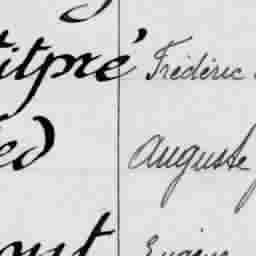 titpré Frédéric
ed Auguste
ont Eugène